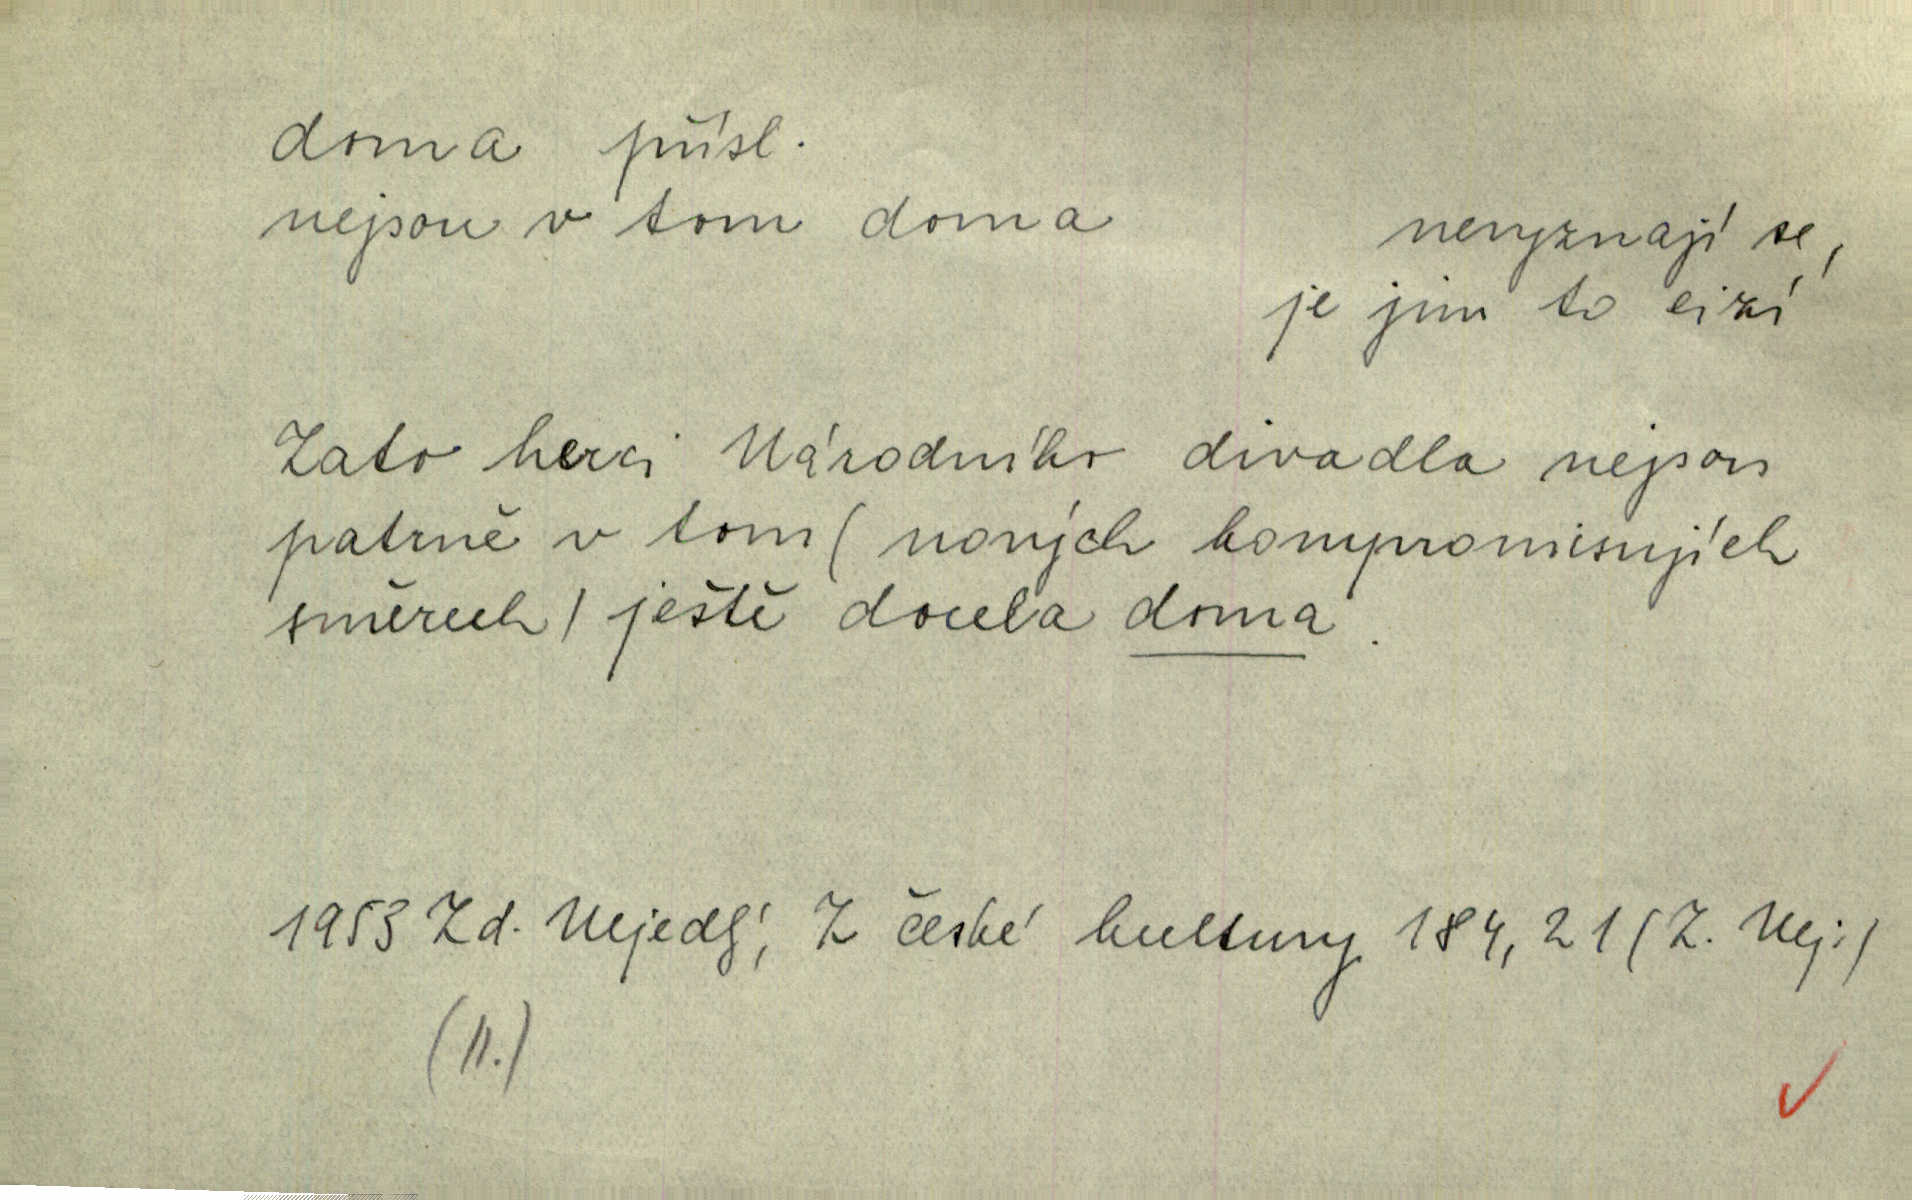 doma přísl.
nejsou v tom doma
nevyznají se,
je jim to cizí
Zato herci Národního divadla nejsou
patrně v tom (nových kompromisujích
směrech) ještě docela doma.
1953 Zd. Nejedlý, Z české kultury 184, 21 (Z. Nej.)
(II.)